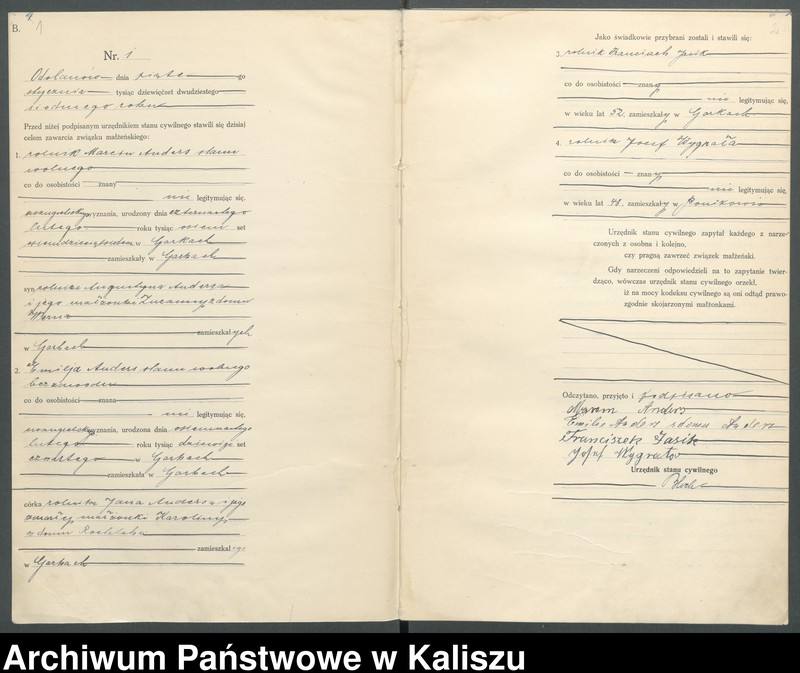 B.
1
Nr. 1
Odolanów dnia piąte go
stycznia tysiąc dziewięćset dwudziestego
siódmego roku
Przed niżej podpisanym urzędnikiem stanu cywilnego stawili się dzisiaj
celem zawarcia związku małżeńskiego:
1. rolnik Marcin Anders stanu
wolnego
co do osobistości znany
nie legitymując się,
ewangelickiego wyznania, urodzony dnia czternastego
lutego roku tysiąc osiem set
w Garkach
zamieszkały w Garkach
syn rolnika Augustyna Andersa
i jego małżonki Zuzanny z domu
zamieszkałych
w Garkach
2. Emilja Anders stanu wolnego
bez zawodu
co do osobistości znana
nie legitymując się,
ewangelickiego wyznania, urodzona dnia osiemnastego
lutego roku tysiąc dziewięć set
czwartego w Garkach
zamieszkała w Garkach
córka rolnika Jana Andersa i jego
zmarłej małżonki Karoliny
z domu
zamieszkałego
w Garkach
Jako świadkowie przybrani zostali i stawili się:
3. rolnik Franciszek Jasik
co do osobistości znany
nie legitymując się,
w wieku lat 52, zamieszkały w Garkach
4. rolnik Józef Wygrała
co do osobistości znany
nie legitymując się,
w wieku lat 48, zamieszkały w
Urzędnik stanu cywilnego zapytał każdego z narze-
czonych z osobna i kolejno,
czy pragną zawrzeć związek małżeński.
Gdy narzeczeni odpowiedzieli na to zapytanie twier-
dząco, wówczas urzędnik stanu cywilnego orzekł,
iż na mocy kodeksu cywilnego są oni odtąd prawo-
zgodnie skojarzonymi małżonkami.
Odczytano, przyjęto i podpisano
Anders
Emilie Anders Anders
Franciszek Jasik
Urzędnik stanu cywilnego
Archiwum Państwowe w Kaliszu